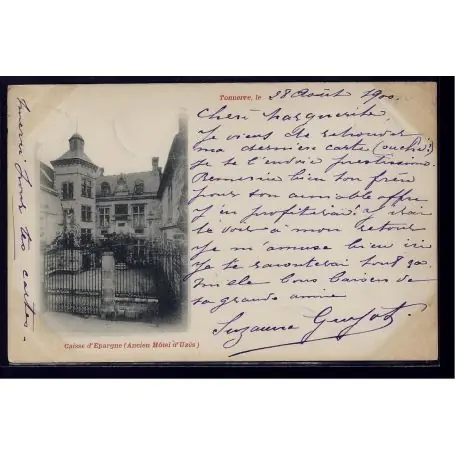 Tonnerre, le 28 Août 1900
Chère Marguerite
Je viens de retrouver
ma dernière carte (ouche!)
je te l'envoie prestissimo
Remercie bien ton frère
pour son aimable offre
j'en profiterai: j'irai
le voir à mon retour
Je m'amuse bien ici
je te raconterai tout ça.
Mille bons baisers de
ta grande amie
Suzanne Guyot.
Merci pour tes cartes.
Caisse d'Epargne (Ancien Hôtel d'Uzès)